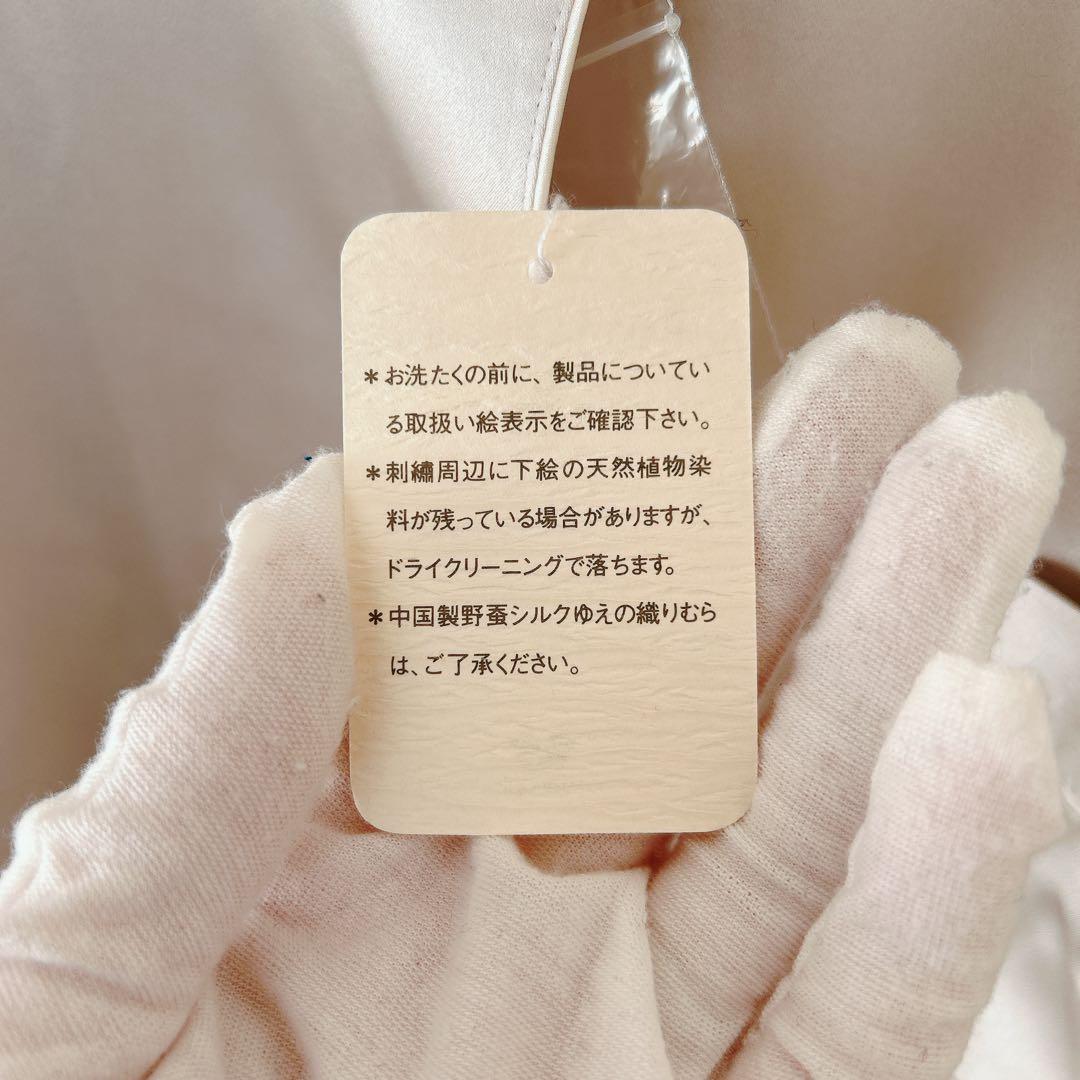 ＊お洗たくの前に、製品についてい
る取扱い絵表示をご確認下さい。
＊刺繡周辺に下絵の天然植物染
料が残っている場合がありますが、
ドライクリーニングで落ちます。
＊中国製野蚕シルクゆえの織りむら
は、ご了承ください。